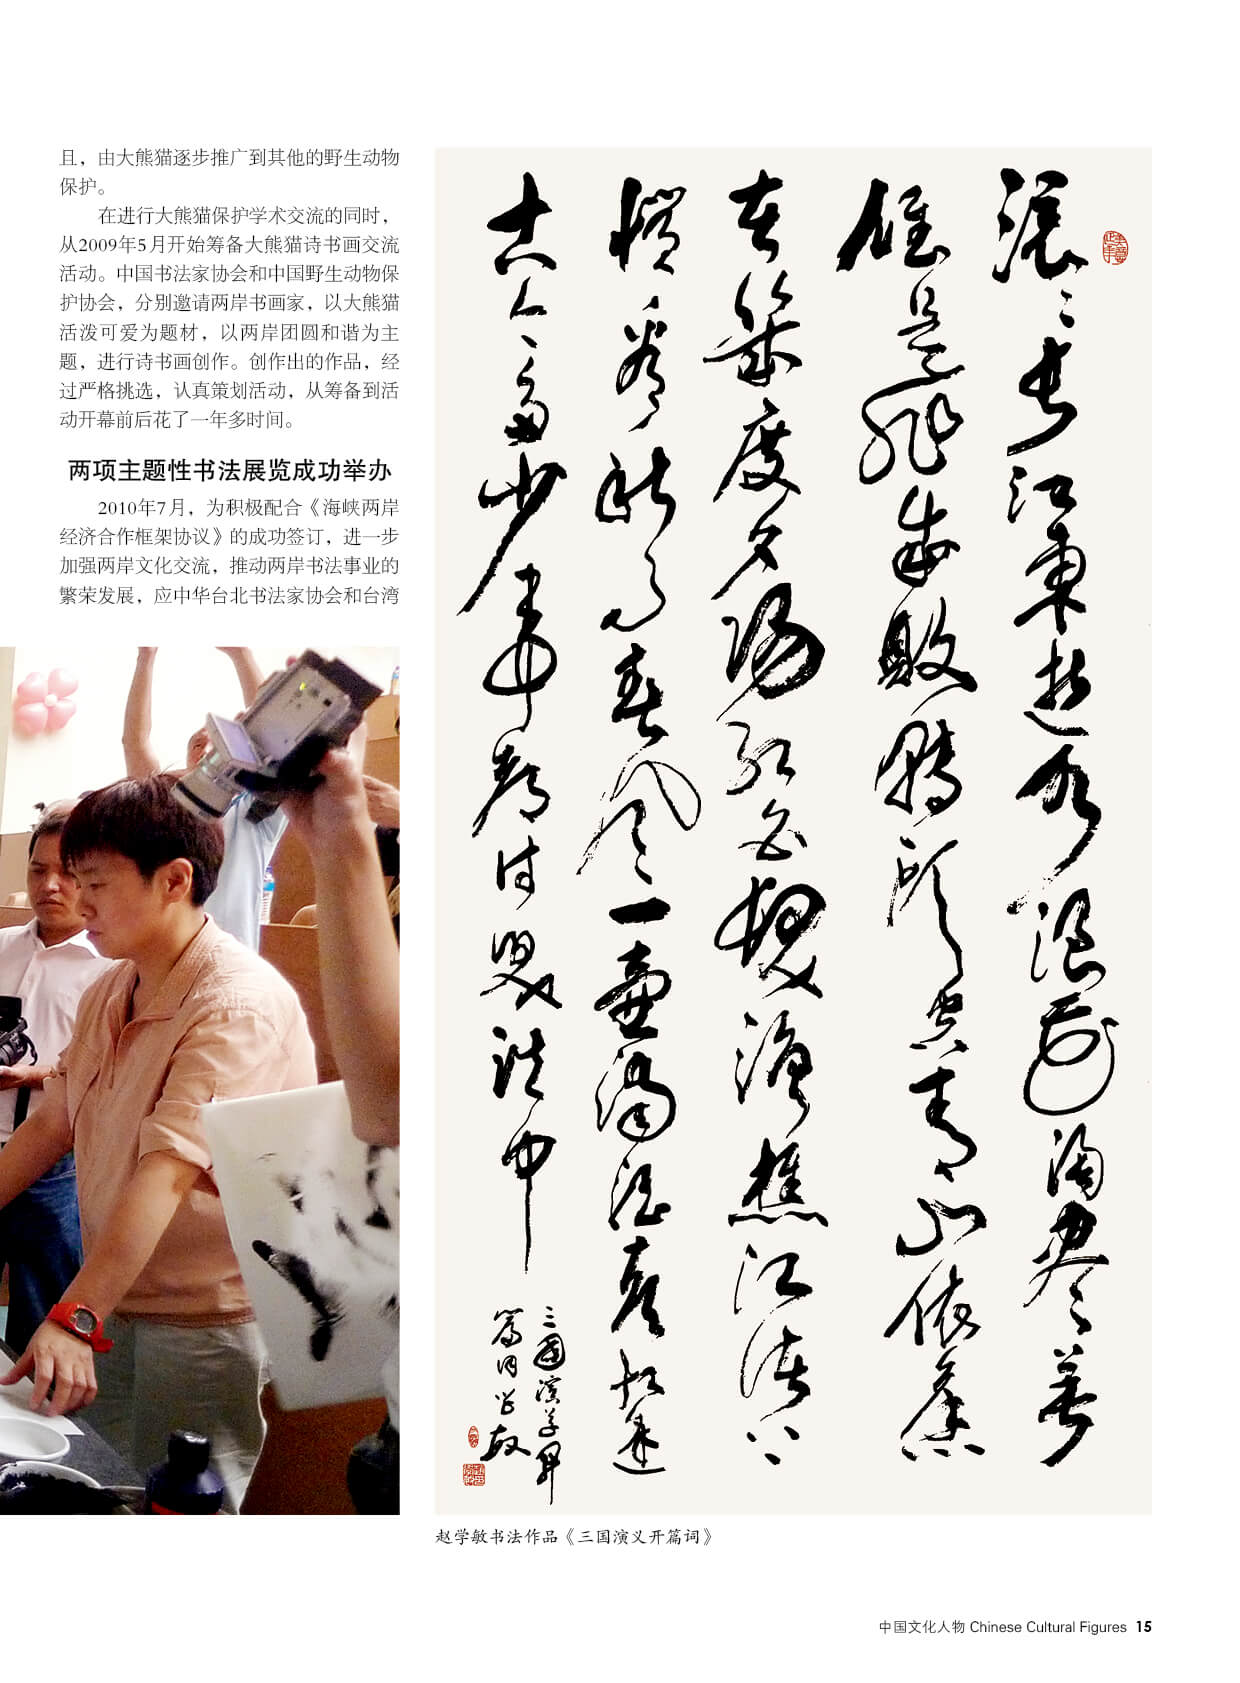 且，由大熊猫逐步推广到其他的野生动物
保护。
在进行大熊猫保护学术交流的同时，
从2009年5月开始筹备大熊猫诗书画交流
活动。中国书法家协会和中国野生动物保
护协会，分别邀请两岸书画家，以大熊猫
活泼可爱为题材，以两岸团圆和谐为主
题，进行诗书画创作。创作出的作品，经
过严格挑选，认真策划活动，从筹备到活
动开幕前后花了一年多时间。
两项主题性书法展览成功举办
2010年7月，为积极配合《海峡两岸
经济合作框架协议》的成功签订，进一步
加强两岸文化交流，推动两岸书法事业的
繁荣发展，应中华台北书法家协会和台湾
滾〻長江東逝水浪花淘盡英
雄是非成敗轉頭空青山依舊
在幾度夕陽紅白髮漁樵江渚上
慣看秋月春風一壺濁酒喜相逢
古今多少事都付笑談中
三國演義開
篇詞學敏
赵学敏书法作品《三国演义开篇词》
中国文化人物 Chinese Cultural Figures 15